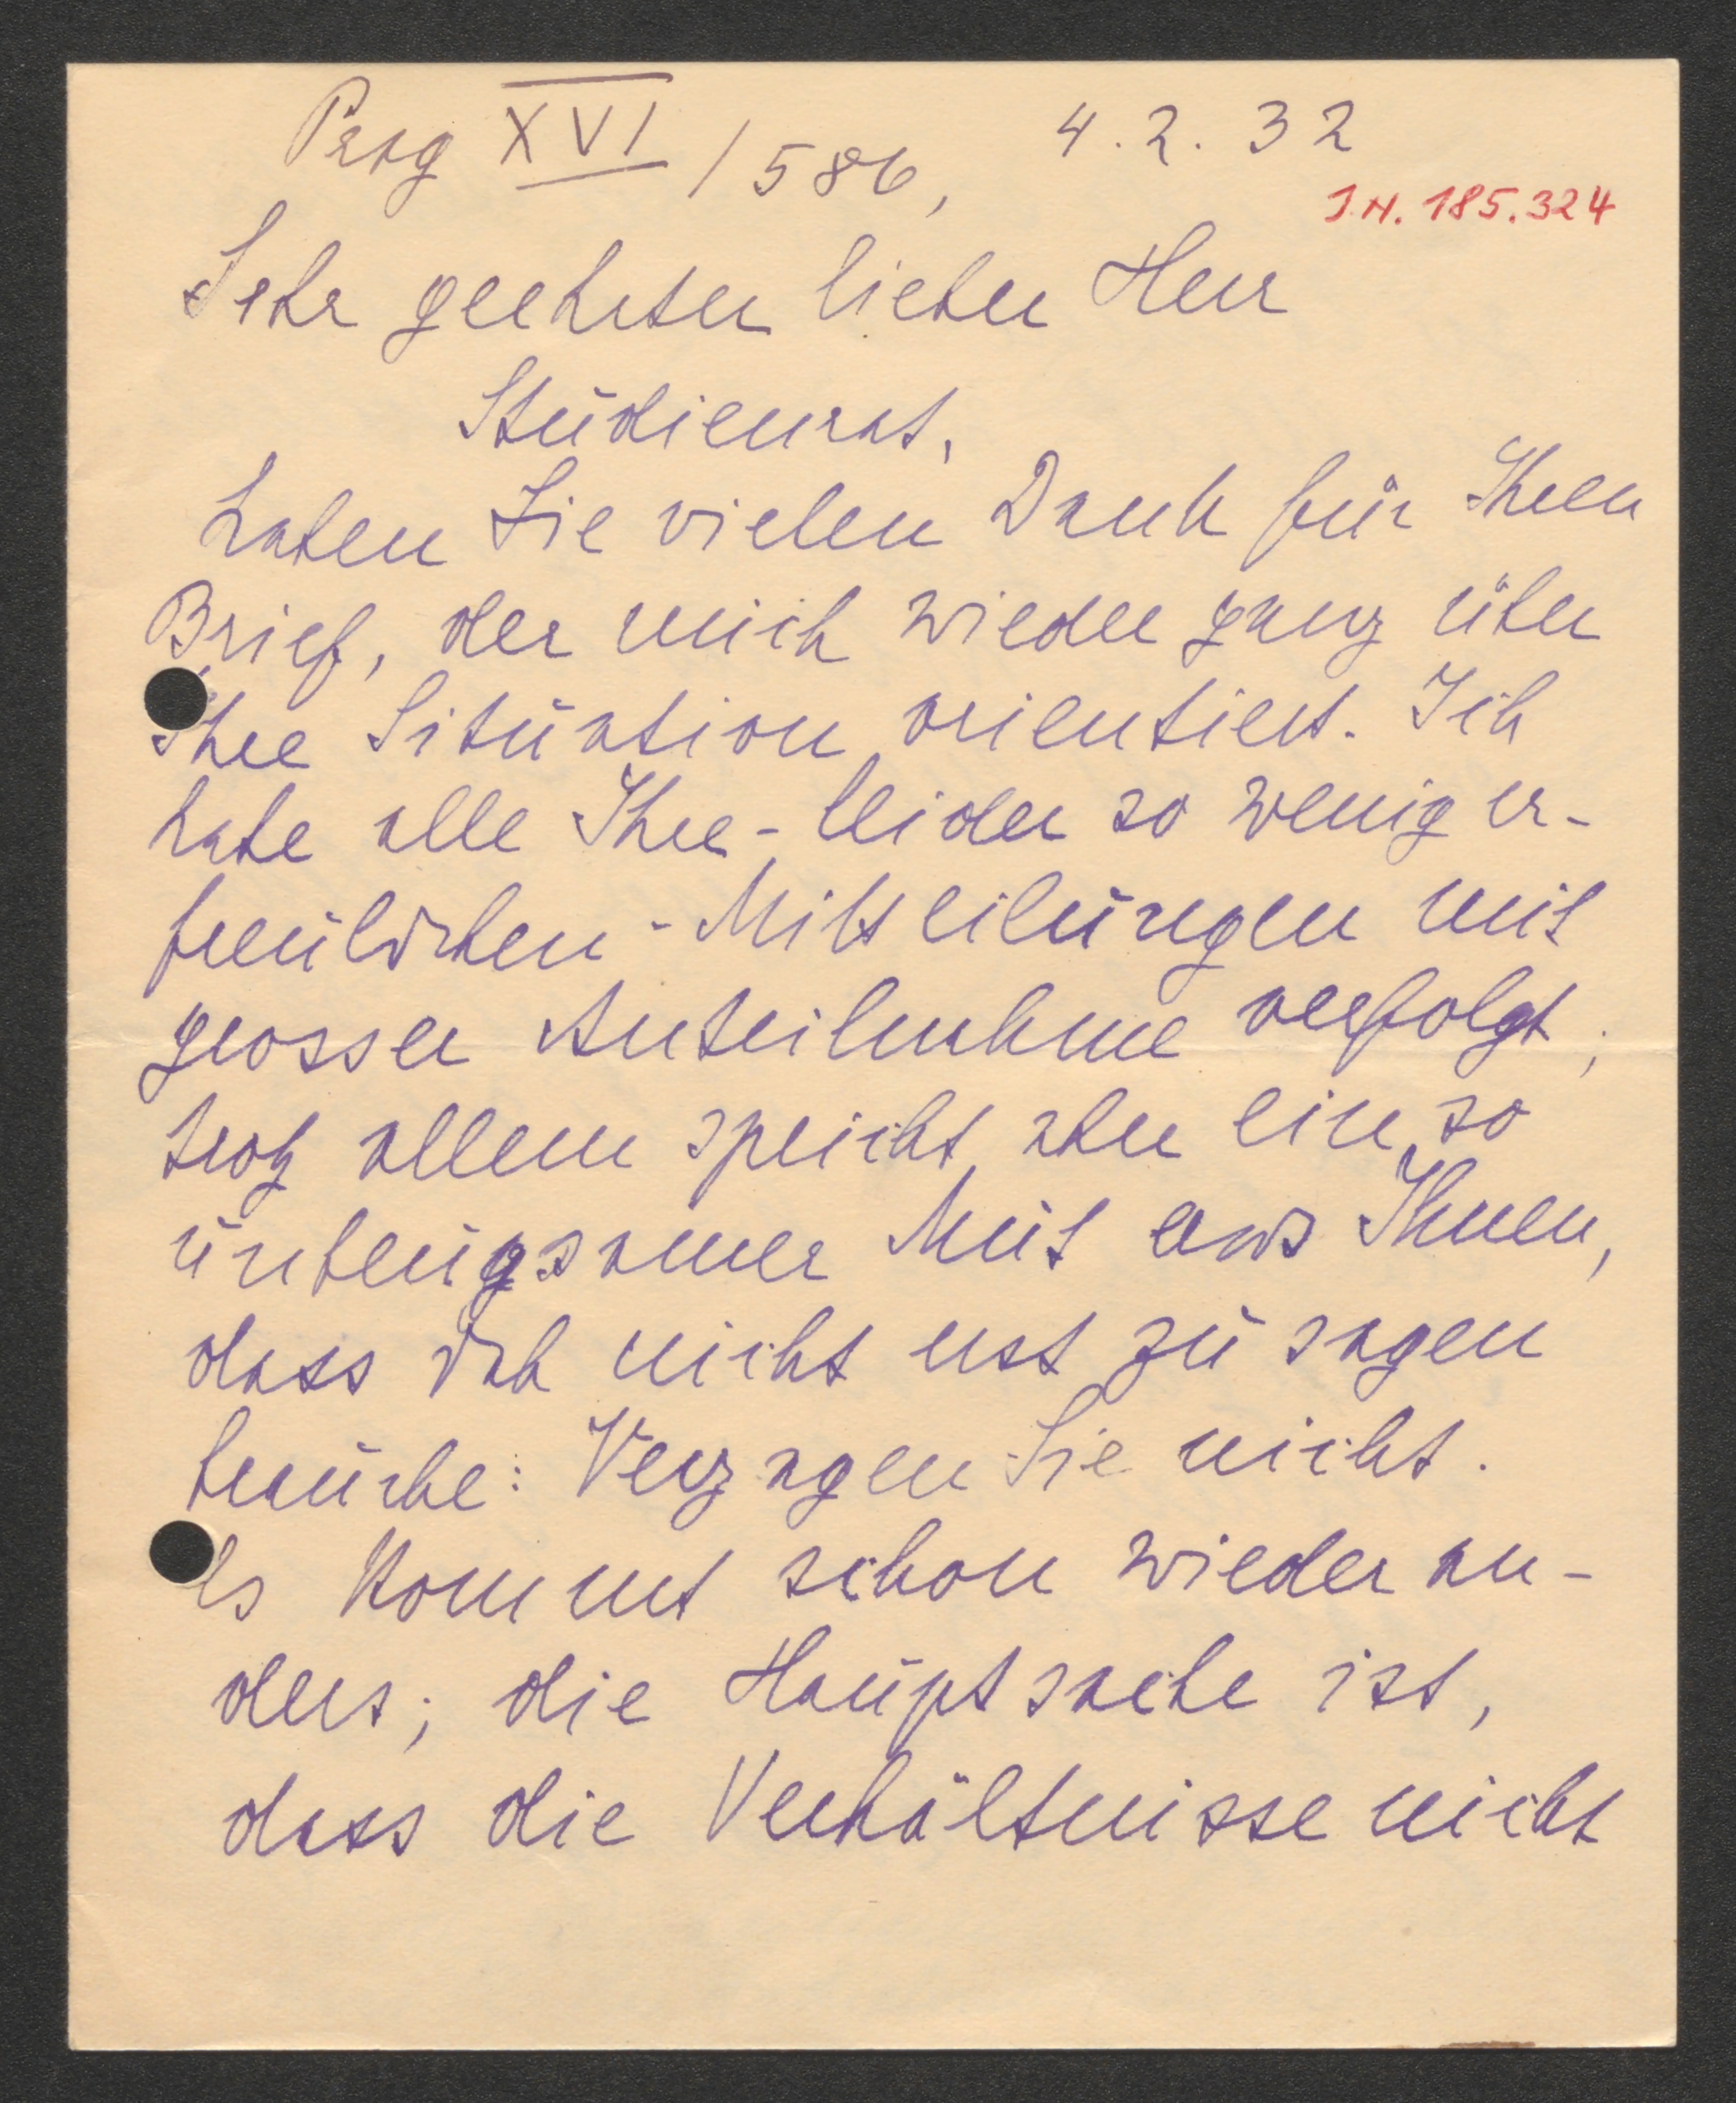 Prag XVI / 586, 4. 2. 32
I.N. 185.324
Sehr geehrter lieber Herr
Studienrat,
haben Sie vielen Dank für Ihren
Brief, der mich wieder ganz über
Ihre Situation orientiert. Ich
habe alle Ihre - leider so wenig er-
freulichen - Mitteilungen mit
grosser Anteilnahme verfolgt;
trotz allem spricht aber ein so
unbeugsamer Mut aus Ihnen,
dass ich nicht erst zu sagen
brauche: Verzagen Sie nicht.
Es kommt schon wieder an-
ders; die Hauptsache ist,
dass die Verhältnisse nicht